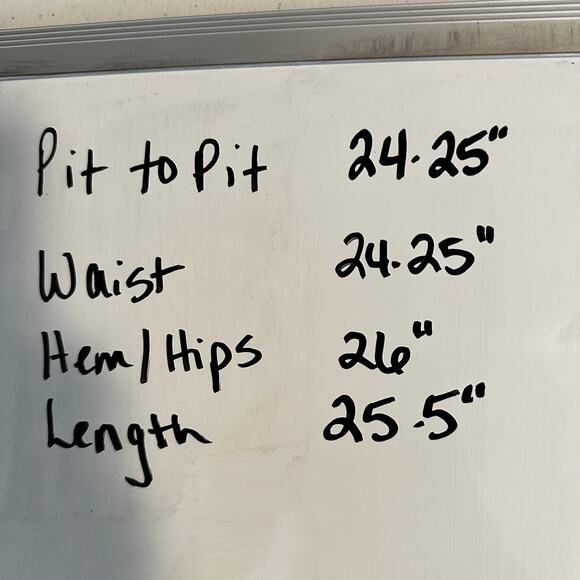 Pit to Pit 24.25"
Waist 24.25"
Hem/Hips 26"
Length 25.5"